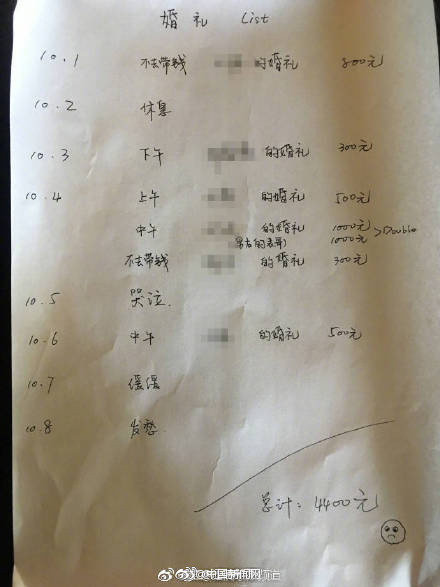 婚礼 List
10.1 不去带钱 的婚礼 800元
10.2 休息
10.3 下午 的婚礼 300元
10.4 上午 的婚礼 500元
中午 的婚礼 1000元 >Double
1000元
不去带钱 的婚礼 300元
10.5 哭泣.
10.6 中午 的婚礼 500元
10.7 缓缓
10.8 发愁.
总计: 4400元
@中国新闻网